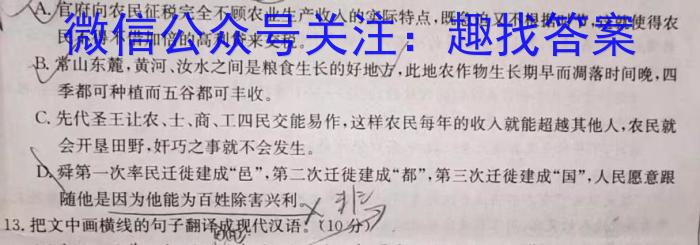 A. 官府向农民征税完全不顾农业生产收入的实际特点,既急迫又不根据时节,这就使得农
微信公众号关注:趣找答案
B. 常山东麓,黄河、汝水之间是粮食生长的好地方,此地农作物生长期早而凋落时间晚,四
季都可种植而五谷都可丰收。
C. 先代圣王让农、士、商、工四民交能易作,这样农民每年的收入就能超越其他人,农民就
会开垦田野,奸巧之事就不会发生。
D. 舜第一次率民迁徙建成“邑”,第二次迁徙建成“都”,第三次迁徙建成“国”,人民愿意跟
随他是因为他能为百姓除害兴利。
13. 把文中画横线的句子翻译成现代汉语。(10分)